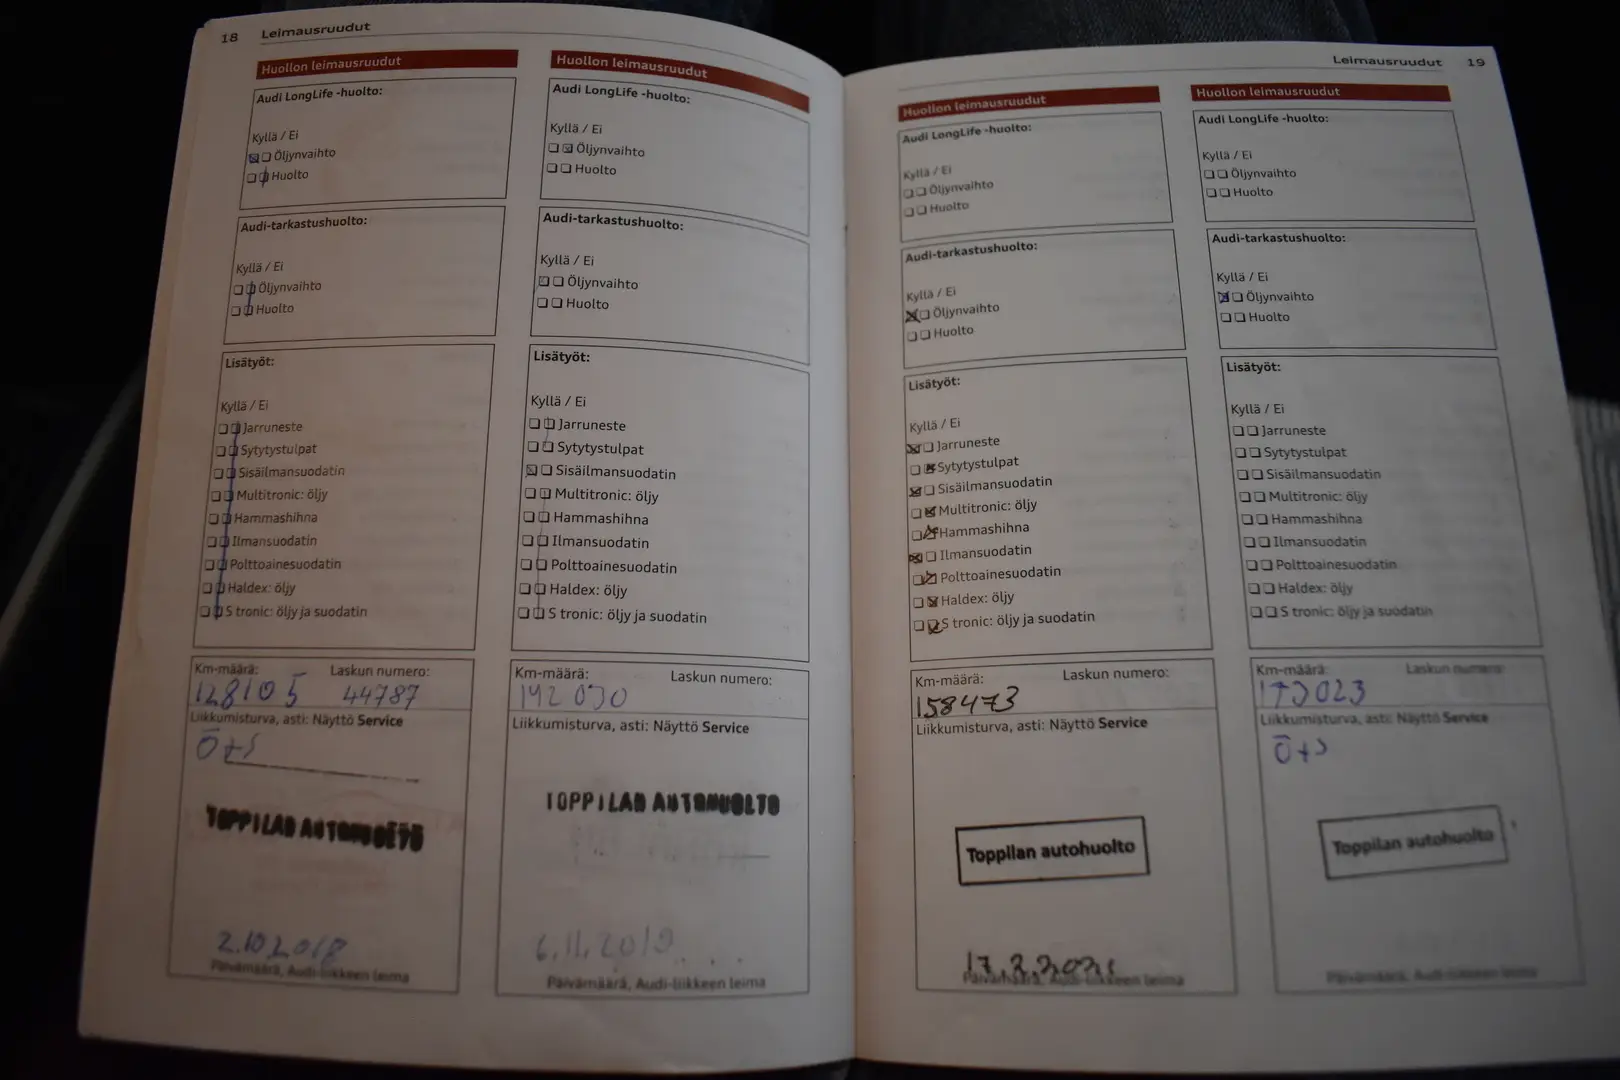 18 Leimausruudut
Huollon leimausruudut
Audi LongLife -huolto:
Kyllä / Ei
Öljynvaihto
Huolto
Audi-tarkastushuolto:
Kyllä / Ei
Öljynvaihto
Huolto
Lisätyöt:
Kyllä / Ei
Jarruneste
Sytytystulpat
Sisäilmansuodatin
Multitronic: öljy
Hammashihna
Ilmansuodatin
Polttoainesuodatin
Haldex: öljy
S tronic: öljy ja suodatin
Km-määrä: Laskun numero:
128105 44787
Liikkumisturva, asti: Näyttö Service
Ö+S
TOPPILAN AUTOHUOLTO
2.10.2018
Päivämäärä, Audi-liikkeen leima
Huollon leimausruudut
Audi LongLife -huolto:
Kyllä / Ei
Öljynvaihto
Huolto
Audi-tarkastushuolto:
Kyllä / Ei
Öljynvaihto
Huolto
Lisätyöt:
Kyllä / Ei
Jarruneste
Sytytystulpat
Sisäilmansuodatin
Multitronic: öljy
Hammashihna
Ilmansuodatin
Polttoainesuodatin
Haldex: öljy
S tronic: öljy ja suodatin
Km-määrä: Laskun numero:
Liikkumisturva, asti: Näyttö Service
TOPPILAN AUTOHUOLTO
6.11.2019
Päivämäärä, Audi-liikkeen leima
Leimausruudut 19
Huollon leimausruudut
Audi LongLife -huolto:
Kyllä / Ei
Öljynvaihto
Huolto
Audi-tarkastushuolto:
Kyllä / Ei
Öljynvaihto
Huolto
Lisätyöt:
Kyllä / Ei
Jarruneste
Sytytystulpat
Sisäilmansuodatin
Multitronic: öljy
Hammashihna
Ilmansuodatin
Polttoainesuodatin
Haldex: öljy
S tronic: öljy ja suodatin
Km-määrä: Laskun numero:
158473
Liikkumisturva, asti: Näyttö Service
Toppilan autohuolto
Päivämäärä, Audi-liikkeen leima
Huollon leimausruudut
Audi LongLife -huolto:
Kyllä / Ei
Öljynvaihto
Huolto
Audi-tarkastushuolto:
Kyllä / Ei
Öljynvaihto
Huolto
Lisätyöt:
Kyllä / Ei
Jarruneste
Sytytystulpat
Sisäilmansuodatin
Multitronic: öljy
Hammashihna
Ilmansuodatin
Polttoainesuodatin
Haldex: öljy
S tronic: öljy ja suodatin
Km-määrä: Laskun numero:
173023
Liikkumisturva, asti: Näyttö Service
Ö+S
Toppilan autohuolto
Päivämäärä, Audi-liikkeen leima